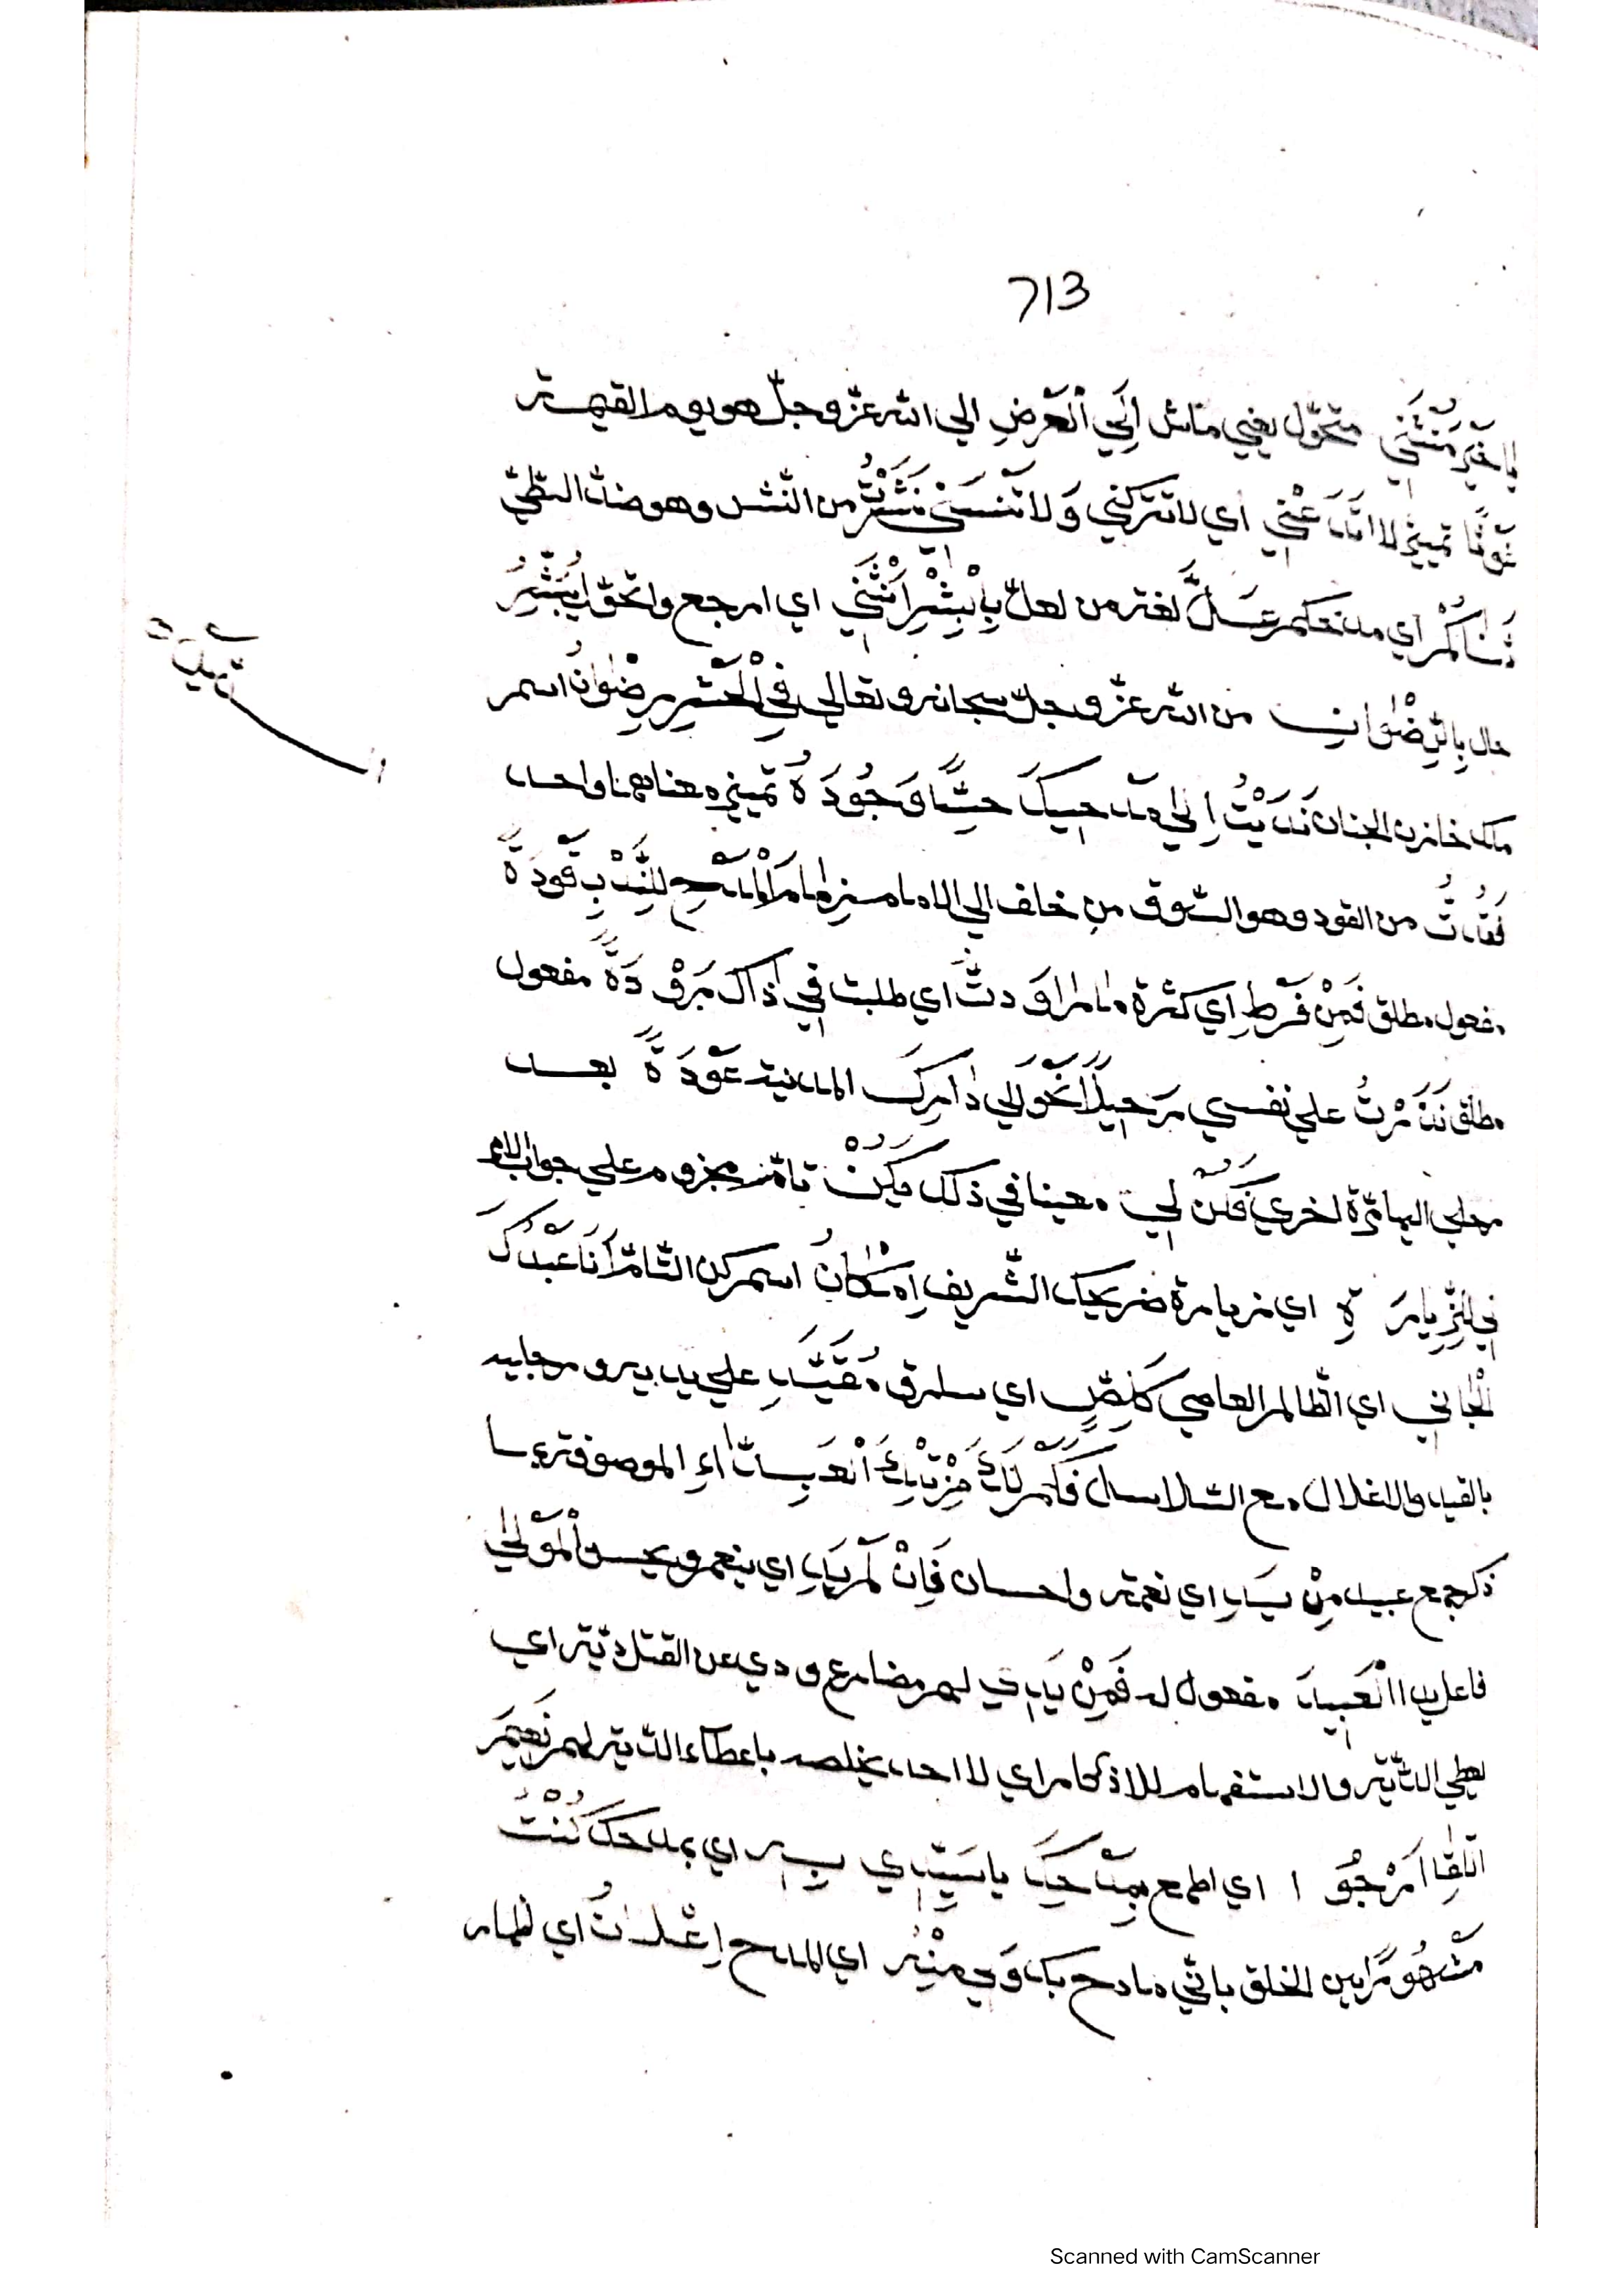 713
يا خَيْرَ مُنْثَنِي متحوّل يعني ماش إِلَي ٱلْعَرْضِ الي الله عزّ وجلّ هو يوم القيمة
تمييز لا عَنِّي اي لا تتركني وَلَا تَنْسَنِي نَشَرْتُ من النّشر وهو ضدّ الطّيّ
ثَنَاكُمْ اي مدحكم عَسَلَّ لغة من لعلّ بِاْبِشْرِ اَنْثَنِي اي ارجع واتحوّل يُبَشِّرُ
حال بِالرِّضْوَانِ من الله عزّ وجلّ سبحانه وتعالي فِي اْلْحَشْرِ رِضْوَانُ اسم
ملك خازن الجنان نَدَيْتُ إِلٰي مدحِيكَ حبًّا وَجُودَةً تمييز معناهما واحد
فَقُدْتُ من القود وهو السّوق من خلف الي الامام زمام اْلْمَدْحِ لِلنَّدْبِ قَوْدَةً
مفعول مطلق فَمِنْ فَرْطِ اي كثرة ما رَاوَدتُّ اي طلبت فِي ذَاكَ رَوْدَةً مفعول
مطلق نَذَرْتُ علي نفسي رَحِيلًا نَحْوَ لِي دَارِكَ المدينة عَوْدَةً بعد
رحلي اليها مرّة اخري فَكُنْ لِي معينا في ذلك يَكُنْ تامّة مجزوم علي جواب الامر
لِي لِلزِّيَارَةِ اي زيارة ضريحك الشّريف اِمْكَانُ اسم كن التّامّ أَنَا عَبْدُكَ
اْلْجَانِي اي الظّالم العاصي كَلِصٍّ اي سارق مُقَيَّدِ علي يديه ورجليه
بالقيد والاغلال مع السّلاسل فَكَمْ لَكَ مِنْ تِلْكَ اْلْعَبِدَّاءِ الموصوفة بما
ذكر جمع عبيد مِنْ يَدِ اي نعمة واحسان فَاِنْ لَمْ يَدِ اي ينعم ويحسن اْلْمَوْلٰي
فاعل يد اْلْعَبِيدَ مفعول له فَمِنْ يَدِي لهم مضارع ودي عن القتل دية اي
يعطي الدّية والاستفهام للانكار اي لا احد يخلصه باعطاء الدّية لهم نَعِيمَ
اللِّقَا اَرْجُوا اي اطمع بِمَدْحِكَ يا سَيِّدِي بِه اي بمدحك كُنْتُ
مَشْهُورًا بين الخلق بانّي مادح بك وَلِي مِنْهُ اي المدح إِعْلَانُ اي اظهار